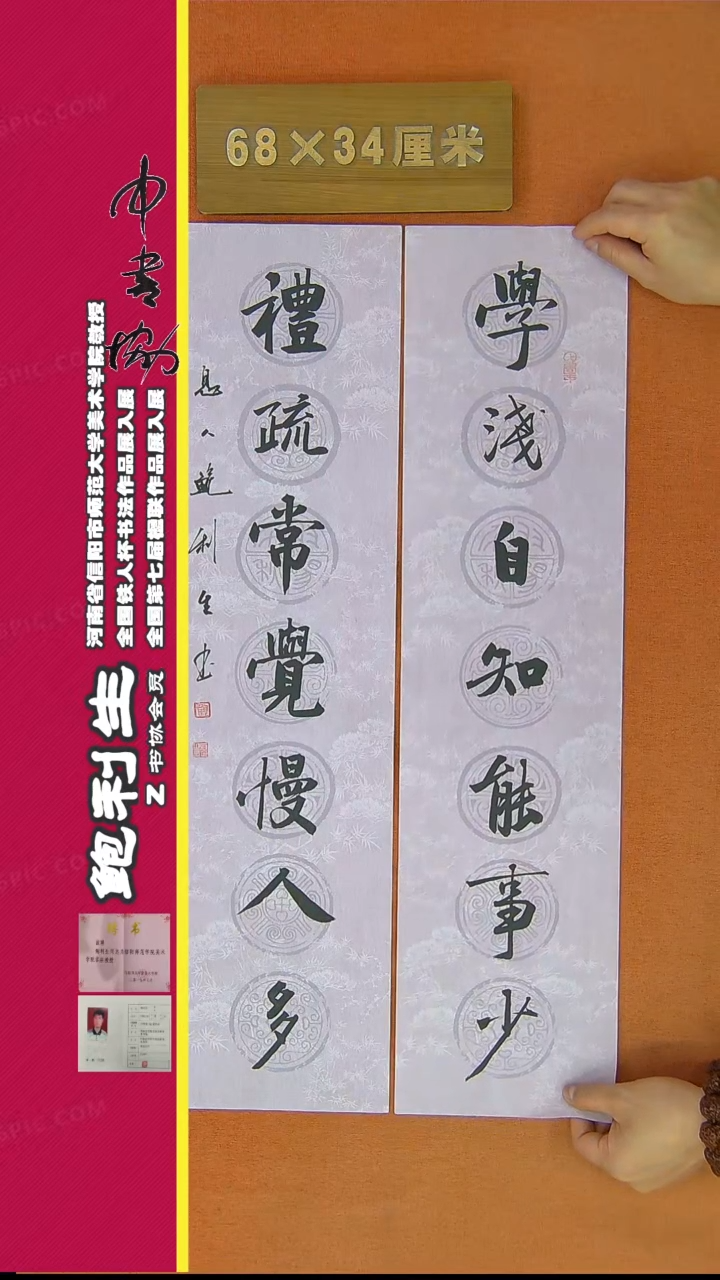 68×34厘米
學淺自知能事少
禮疏常覺慢人多
鮑利生书
中书协
河南省信阳市师范大学美术学院教授
全国铁人杯书法作品展入展
全国第七届楹联作品展入展
鲍利生
Z书协会员
聘书